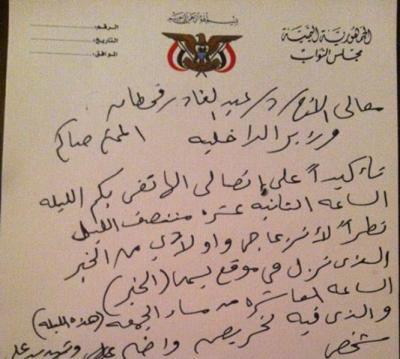 بسم الله الرحمن الرحيم
الجمهورية اليمنية
مجلس النواب
الرقم:
التاريخ:
المرافق:
معالي الأخ / د / عبد القادر قحطان
وزير الداخلية المحترم صباحكم
تأكيداً على اتصالي الهاتفي بكم الليله
الساعه الثانيه عشره منتصف الليل
نظراً لانزعاجي واولادي من الخبر
الذي نزل في موقع يسما (الخبر)
الساعه العاشره من مساء الجمعه (هذه الليله)
والذي فيه تحريض واضح على
شخصي